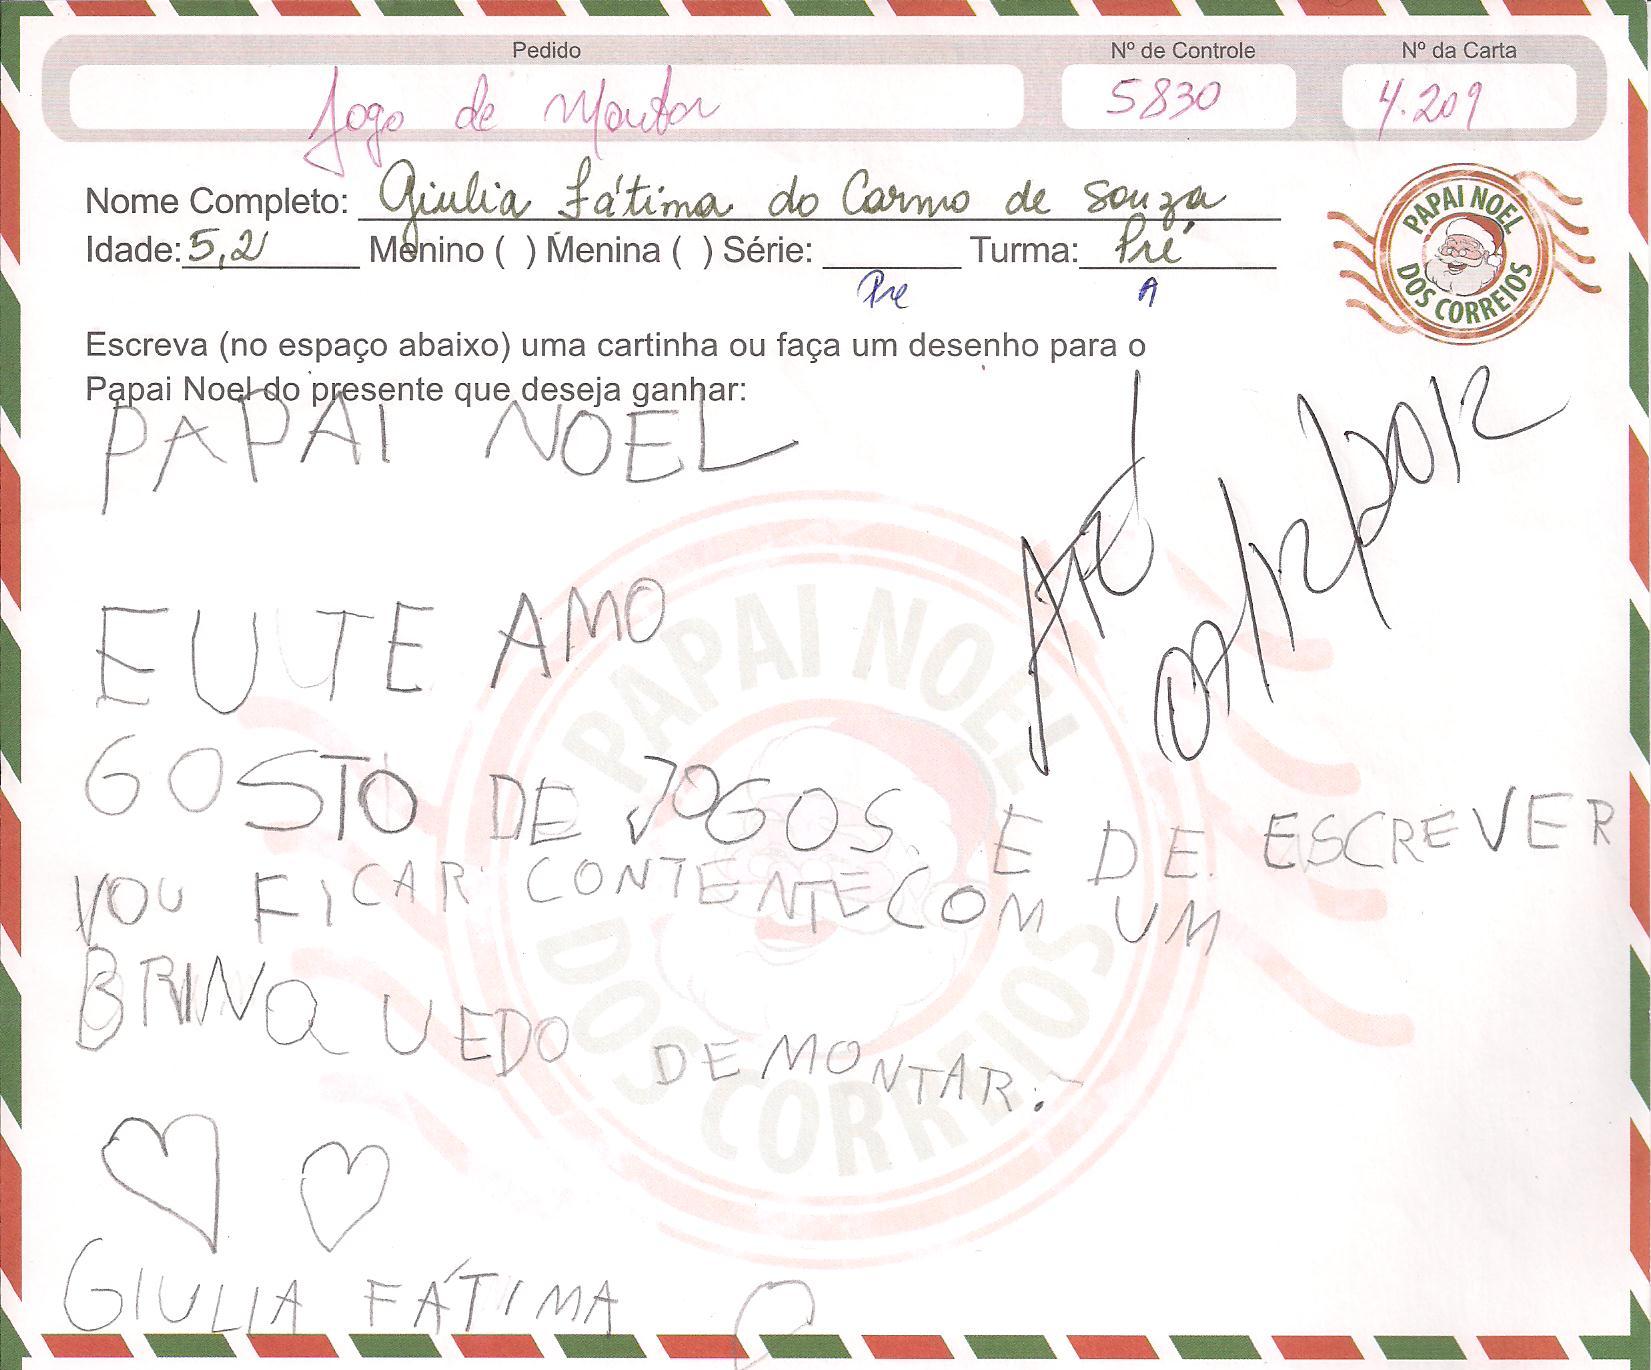 Pedido Nº de Controle Nº da Carta
Jogo de Montar 5830 4.209
Nome Completo: Giulia Fátima do Carmo de Souza
Idade: 5,2 Menino ( ) Menina ( ) Série: Turma: Pré
Pre A
PAPAI NOEL DOS CORREIOS
Escreva (no espaço abaixo) uma cartinha ou faça um desenho para o
Papai Noel do presente que deseja ganhar:
PAPAI NOEL
07/12/2012
EU TE AMO
GOSTO DE JOGOS. E DE ESCREVER
VOU FICAR CONTENTE COM UM
BRINQUEDO DE MONTAR.
GIULIA FÁTIMA
PAPAI NOEL DOS CORREIOS